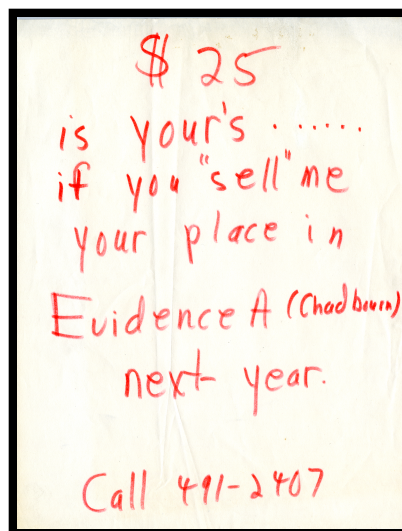 $ 25
is your's ......
if you "sell" me
your place in
Evidence A (Chadbourn)
next year.
Call 491-2407